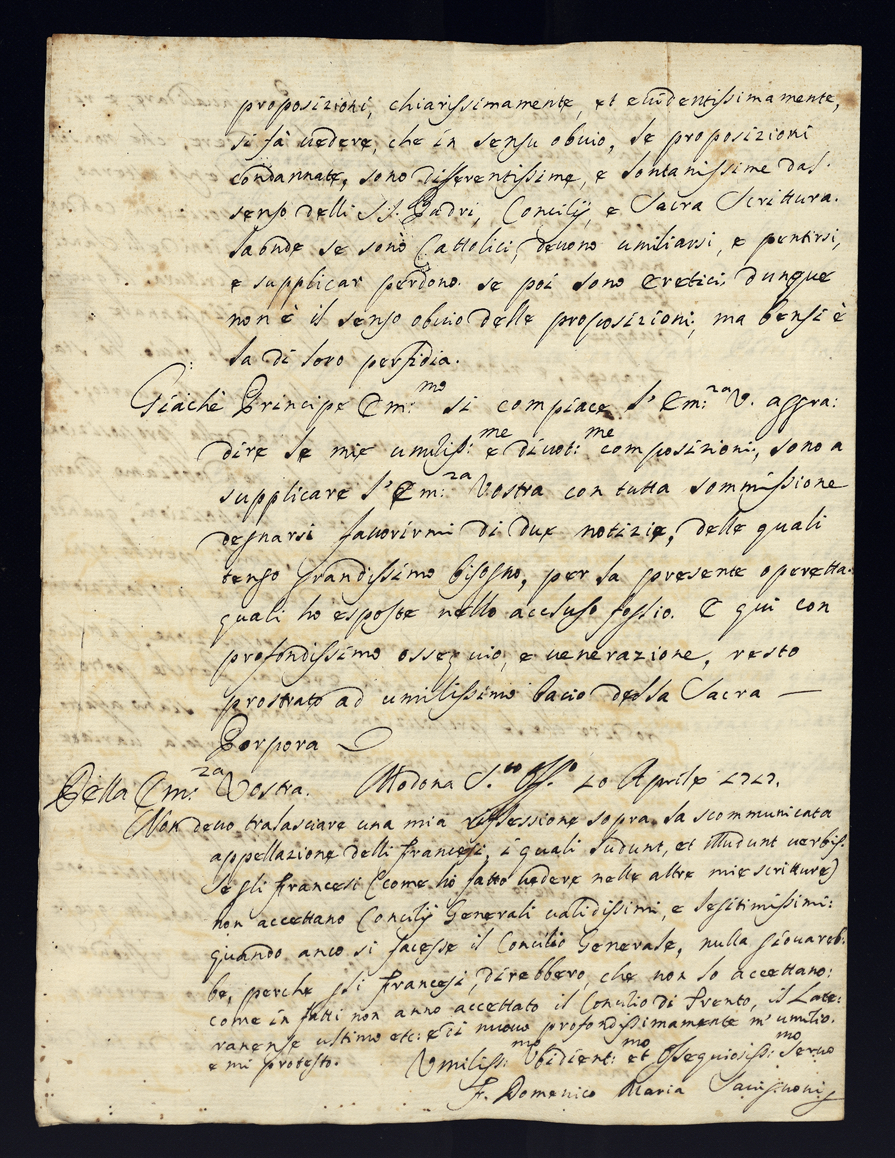 proposizioni, chiarissimamente, et evidentissimamente,
si fà vedere, che in sensu obvio, le proposizioni
condannate, sono differentissime, e lontanissime dal
senso delli SS. Padri, Concilij, e Sacra Scrittura.
laonde se sono Cattolici, devono umiliarsi, e pentirsi,
e supplicar perdono. se poi sono eretici, dunque
non è il senso obvio delle proposizioni, ma bensi è
la di loro perfidia.
Giachè Principe Em:mo si compiace l'Em:za V. aggra:
dire le mie umiliss:me e divot:me composizioni, sono a
supplicare l'Em:za Vostra con tutta sommissione
degnarsi favorirmi di due notizie, delle quali
tengo grandissimo bisogno, per la presente operetta.
quali ho esposte nello accluso foglio. E qui con
profondissimo ossequio, e venerazione, resto
prostrato ad umilissimo bacio della Sacra —
Porpora
Della Em:za Vostra. Modona S.to Off.o 20 Aprile
Non devo tralasciare una mia riflessione sopra la scommunicata
appellazione delli francesi, i quali ludunt, et illudunt verbis.
Se gli francesi (come hò fatto vedere nelle altre mie scritture)
non accettano Concilij Generali validissimi, e legitimissimi:
quando anco si facesse il Concilio Generale, nulla giovareb:
be, perche gli francesi, direbbero, che non lo accettano:
come in fatti non anno accettato il Concilio di Trento, il Late:
ranense ultimo etc: e di nuovo profondissimamente m'umilio.
e mi protesto. Umiliss:mo Obidient:mo et Ossequiosiss:mo Servo
F. Domenico Maria